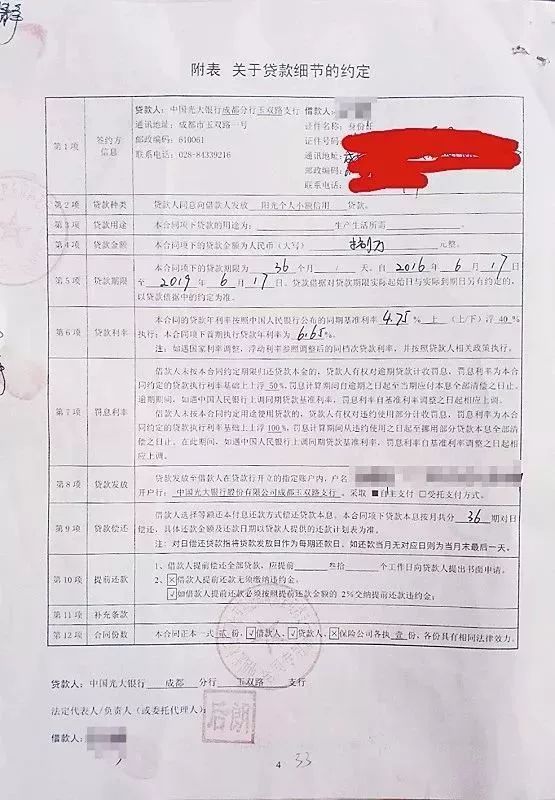 附表 关于贷款细节的约定
第1项
签约方信息
贷款人：中国光大银行成都分行玉双路支行
通讯地址：成都市玉双路一号
邮政编码：610061
联系电话：028-84339216
借款人：
证件名称：身份
证件号码
通讯地址：
邮政编码：
联系电话：
第2项 贷款种类 贷款人同意向借款人发放 阳光个人小额信用 贷款。
第3项 贷款用途 本合同项下贷款的用途为： 生产生活所需
第4项 贷款金额 本合同项下的贷款金额为人民币（大写） 元整。
第5项 贷款期限
本合同项下的贷款期限为 36 个月 / 天。自 2016 年 6 月 17 日
至 2019 年 6 月 17 日。贷款借据对贷款期限实际起始日与实际到期日另有约定的，
以贷款借据中的约定为准。
第6项 贷款利率
本合同的贷款年利率按照中国人民银行公布的同期基准利率 4.75% 上（上/下）浮 40%
执行；本合同项下首期执行贷款年利率为 6.65%
注：如遇国家利率调整，浮动利率参照调整后的同档次贷款利率，并按照贷款人相关政策执行。
第7项 罚息利率
借款人未按本合同约定期限归还贷款本金的，贷款人有权对逾期贷款计收罚息，罚息利率为本合
同约定的贷款执行利率基础上上浮 50%，罚息计算期间自逾期之日起至当期应付本息全部清偿之日止。
逾期期间，如遇中国人民银行上调同期贷款基准利率，罚息利率自基准利率调整之日起相应上调。
借款人未按本合同约定用途使用贷款的，贷款人有权对违约使用部分计收罚息，罚息利率为本合
同约定的贷款执行利率基础上上浮 100%，罚息计算期间从违约使用之日起至挪用部分贷款本息全部清
偿之日止。在此期间，如遇中国人民银行上调同期贷款基准利率，罚息利率自基准利率调整之日起相
应上调。
第8项 贷款发放
贷款发放至借款人在贷款行开立的指定账户内，户名
开户行：中国光大银行股份有限公司成都玉双路支行。采取 ■自主支付 □受托支付方式。
第9项 贷款偿还
借款人选择等额还本付息还款方式偿还贷款本息。本合同项下贷款本息按月共分 36 期对日
偿还，具体还款金额及还款日期以贷款人提供的还款计划表为准。
注：对日偿还贷款指将贷款发放日作为每期还款日。如还款当月无对应日则为当月末最后一天。
第10项 提前还款
1、借款人提前偿还全部贷款，应提前 叁拾 个工作日向贷款人提出书面申请。
☒借款人提前还款无须缴纳违约金。
☑如借款人提前还款必须按照提前还款金额的 2%交纳提前还款违约金；
第11项 补充条款
第12项 合同份数 本合同正本一式 贰 份，☑借款人、☑贷款人、☒保险公司各执 壹 份，各份具有相同法律效力。
贷款人：中国光大银行 成都 分行 玉双路 支行
法定代表人/负责人（或委托代理人）：
后朗
借款人：
4
33